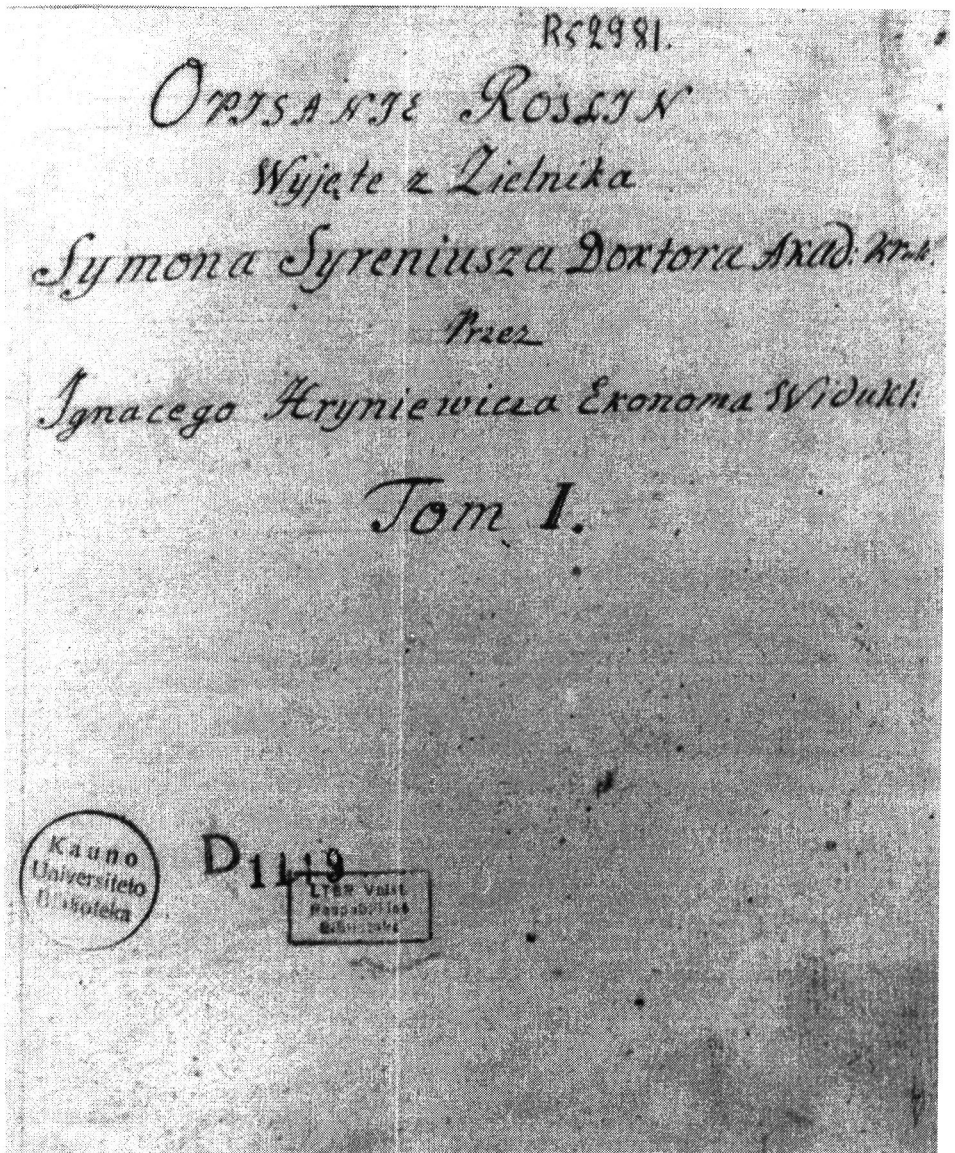 Rs2981.
OPISANIE ROSLIN
Wyjęte z Zielnika
Symona Syreniusza Doxtora Akad: Krak.
Przez
Jgnacego Hryniewicza Ekonoma Widukl:
Tom I.
Kauno
Universiteto
Biblioteka
D1119
LTSR Valst.
Respublikos
Biblioteka